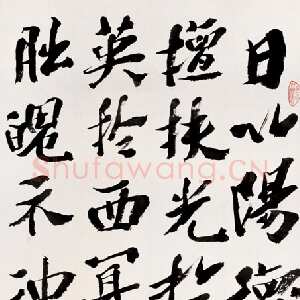 日以陽德
擅扶光於
英於西冥
朏魄示沖
Shufawang.CN